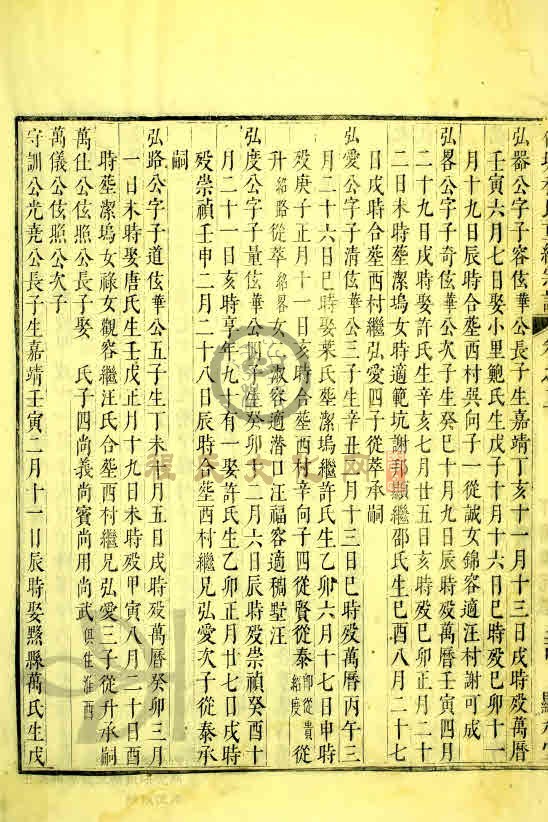 弘器公字子容伭華公長子生嘉靖丁亥十一月十三日戌時殁萬曆
壬寅六月七日娶小里鮑氏生戊子十月十六日巳時殁巳卯十一
月十九日辰時合塟西村巽向子一從誠女錦容適汪村謝可成
弘畧公字子奇伭華公次子生癸巳十月九日辰時殁萬曆壬寅四月
二十九日戌時娶許氏生辛亥七月廿五日亥時殁巳卯正月二十
二日未時塟潔塢女時適範坑謝邦顯繼邵氏生巳酉八月二十七
日戌時合塟西村繼弘愛四子從萃承嗣
弘愛公字子清伭華公三子生辛丑 月十三日巳時殁萬曆丙午三
月二十六日巳時娶葉氏塟潔塢繼許氏生乙卯六月十七日申時
殁庚子正月十一日亥時合塟西村辛向子四從賢從泰紹度從
升紹路從萃紹畧女 淑容適潛口汪福容適稠墅汪
弘度公字子量伭華公四子生癸卯十二月六日辰時殁崇禎癸酉十
月二十一日亥時享年九十有一娶許氏生乙卯正月廿七日戌時
殁崇禎壬申二月二十八日辰時合塟西村繼兄弘愛次子從泰承
嗣
弘路公字子道伭華公五子生丁未十月五日戌時殁萬曆癸卯三月
一日未時娶唐氏生壬戌正月十九日未時殁甲寅八月二十日酉
時塟潔塢女祿女觀容繼汪氏合塟西村繼兄弘愛三子從升承嗣
萬仕公伭照公長子娶 氏子四尚義尚賓尚用尚武俱住淮西
萬儀公伭照公次子
守訓公光尭公長子生嘉靖壬寅二月十一日辰時娶黟縣萬氏生戊
程氏文化网